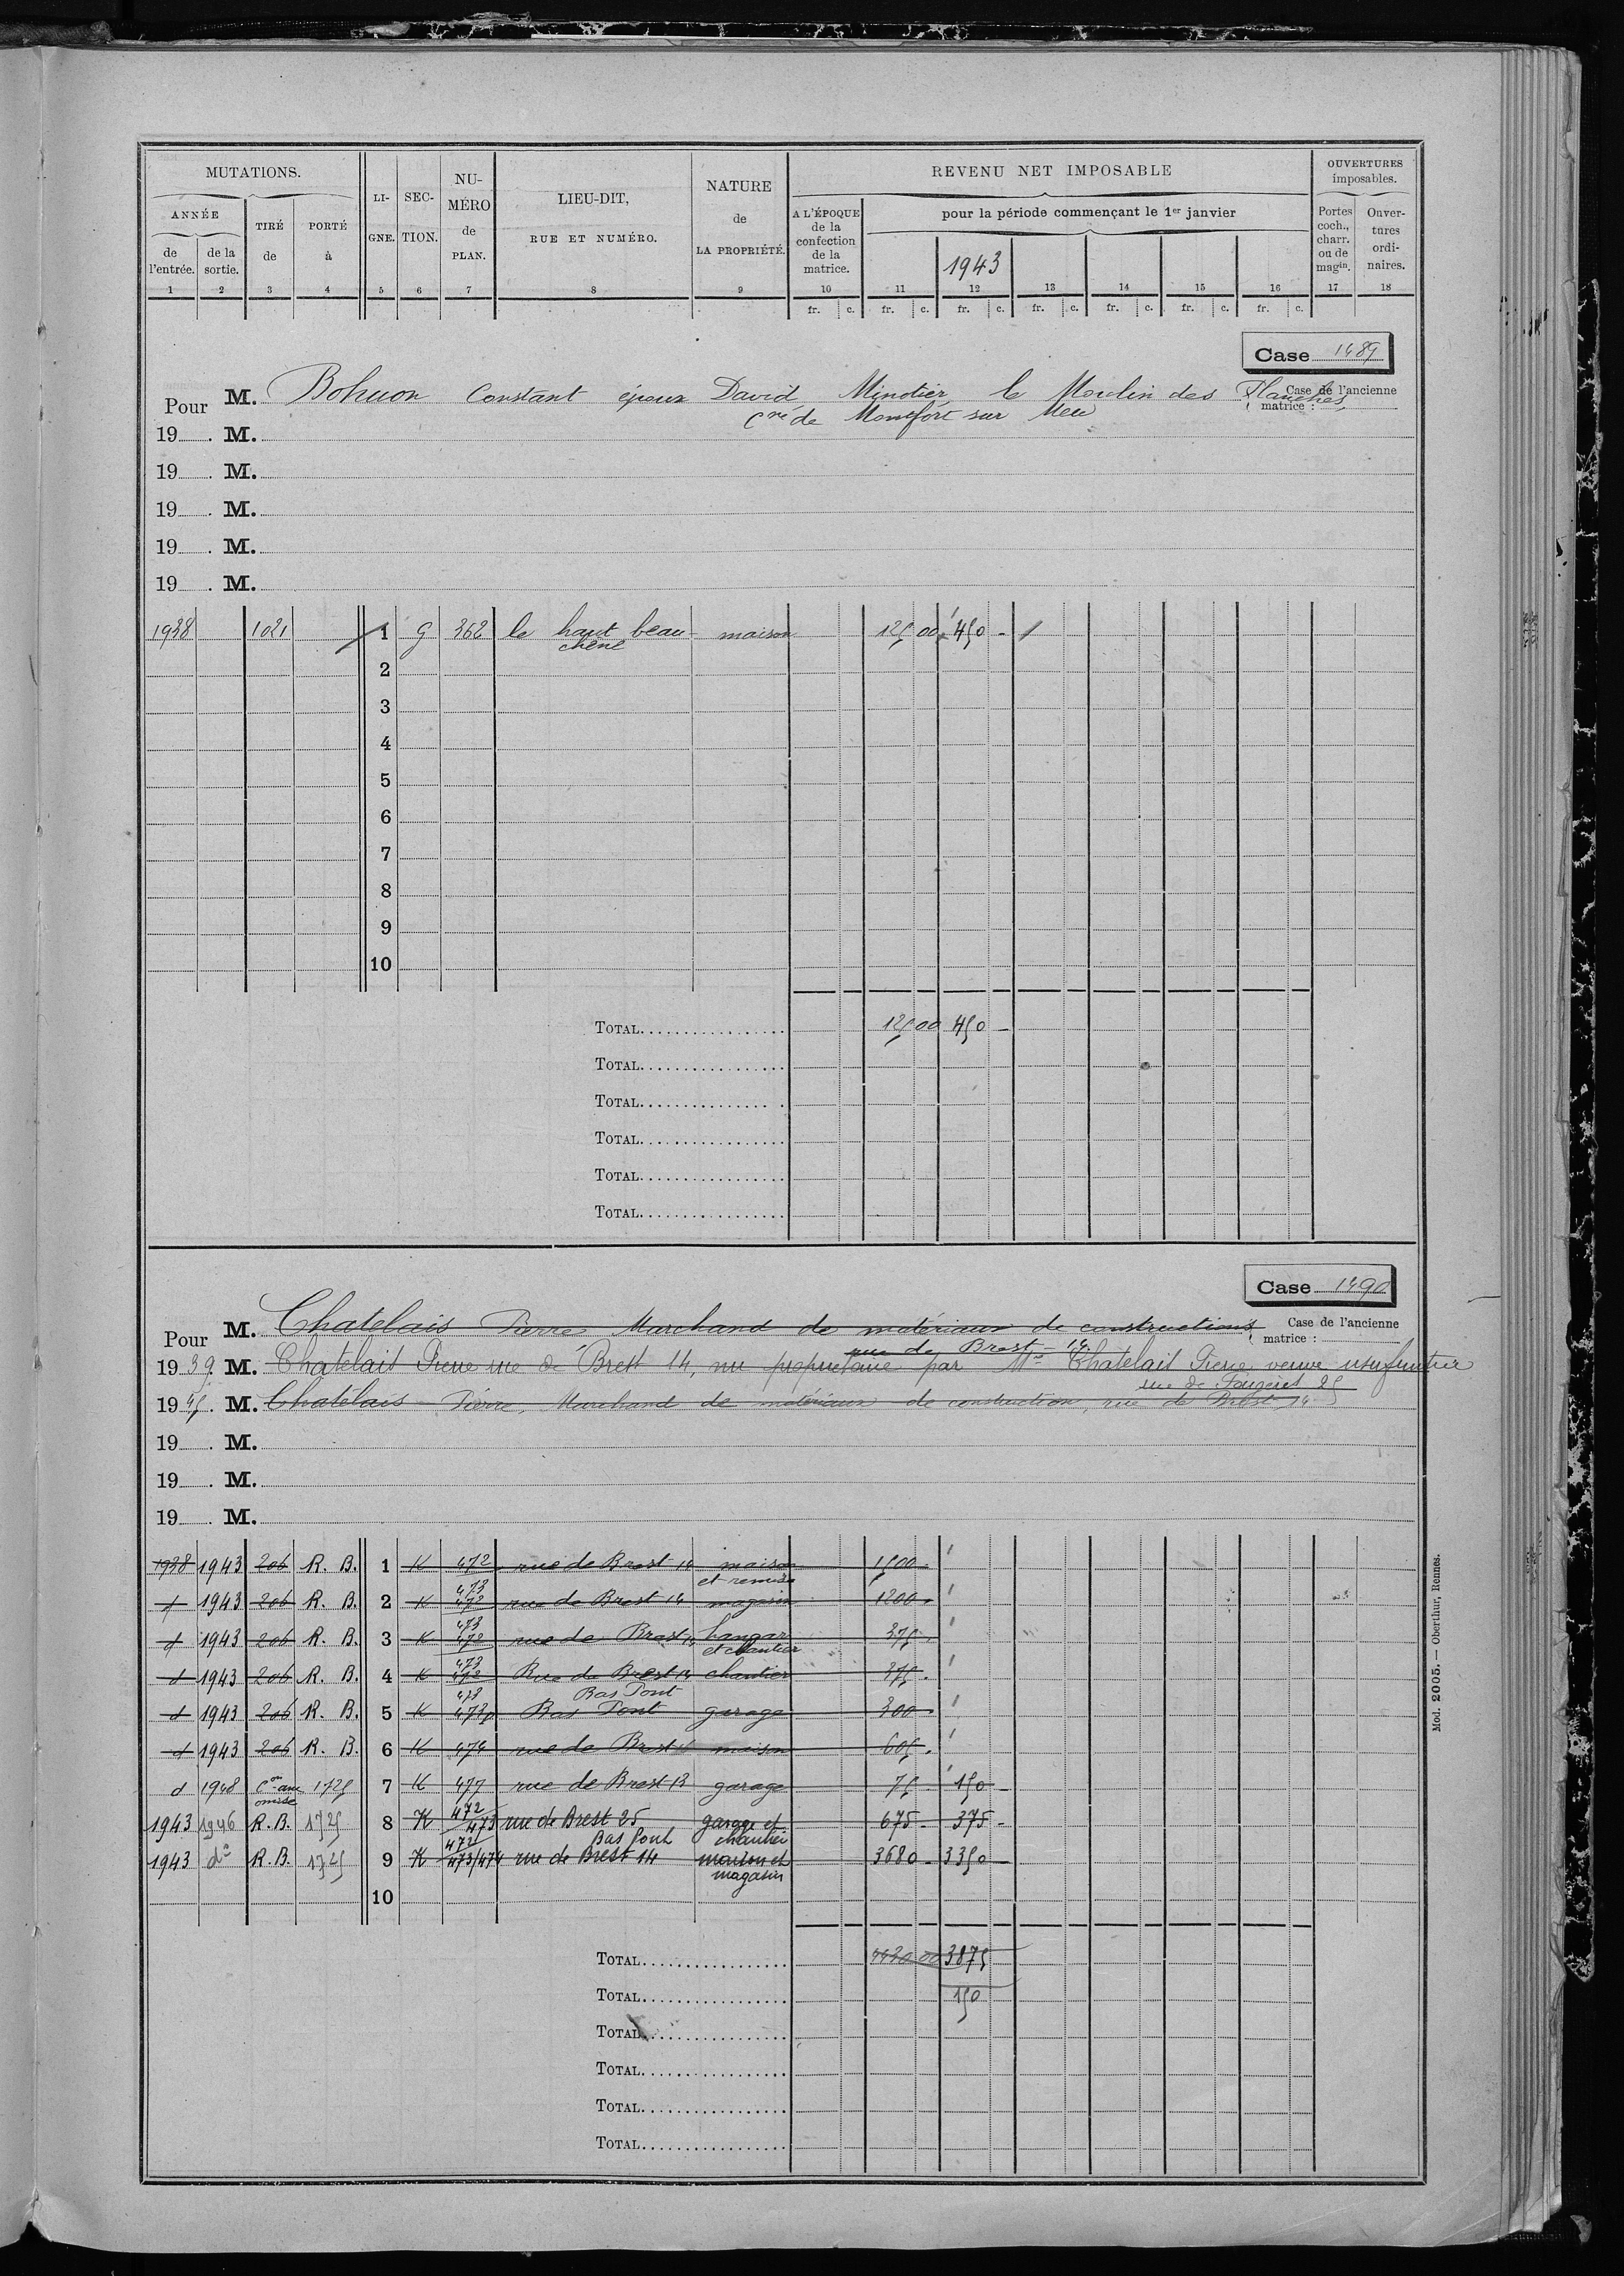 MUTATIONS.
ANNÉE
de l'entrée.
de la sortie.
TIRÉ de
PORTÉ à
LI-GNE.
SEC-TION.
NU-MÉRO de PLAN.
LIEU-DIT,
RUE ET NUMÉRO.
NATURE
de
LA PROPRIÉTÉ.
REVENU NET IMPOSABLE
A L'ÉPOQUE
de la
confection
de la
matrice.
pour la période commençant le 1er janvier
1943
OUVERTURES
imposables.
Portes coch., charr. ou de magin.
Ouver-tures ordi-naires.
1 2 3 4 5 6 7 8 9 10 11 12 13 14 15 16 17 18
fr. c. fr. c. fr. c. fr. c. fr. c. fr. c. fr. c.
Case 1489
Case de l'ancienne
matrice :
Pour M. Bohuon Constant époux David Minotier le Moulin des Planches
Cne de Montfort sur Meu
19 . M.
19 . M.
19 . M.
19 . M.
19 . M.
1938 1021 1 G 362 le haut beau- maison 125 00 450 -
chêne
2
3
4
5
6
7
8
9
10
TOTAL 125 00 450 -
TOTAL
TOTAL
TOTAL
TOTAL
TOTAL
Case 1490
Case de l'ancienne
matrice :
Pour M. Chatelais Pierre Marchand de matériaux de constructions
rue de Brest - 14
19 39. M. Chatelait Pierre rue de Brest 14, nu propriétaire par Me Chatelait Pierre veuve usufruitier
rue de Fougères 25
19 45. M. Chatelais Pierre, Marchand de matériaux de construction, rue de Brest 14
19 . M.
19 . M.
19 . M.
1938 1943 206 R. B. 1 K 472 rue de Brest 14 maison 1500 -
et remise
d 1943 206 R. B. 2 K 473 472 rue de Brest 14 magasin 1200 -
d 1943 206 R. B. 3 K 473 472 rue de Brest 14 hangar 375 -
et chantier
d 1943 206 R. B. 4 K 473 472 Rue de Brest 14 chantier 375 -
Bas Pont
d 1943 206 R. B. 5 K 473 473p Bas Pont garage 300 -
d 1943 206 R. B. 6 K 474 rue de Brest maison 605 -
d 1948 Con anc 1725 7 K 477 rue de Brest 13 garage 75 - 150 -
omise
1943 1946 R. B. 1725 8 K 472 473 rue de Brest 25 garage et 675 - 375 -
Bas Pont chantier
1943 do R. B. 1725 9 K 472 473/474 rue de Brest 14 maison et 3680 - 3350 -
magasin
10
TOTAL 4430 00 3875
TOTAL 150
TOTAL
TOTAL
TOTAL
TOTAL
Mod. 2005. — Oberthur, Rennes.